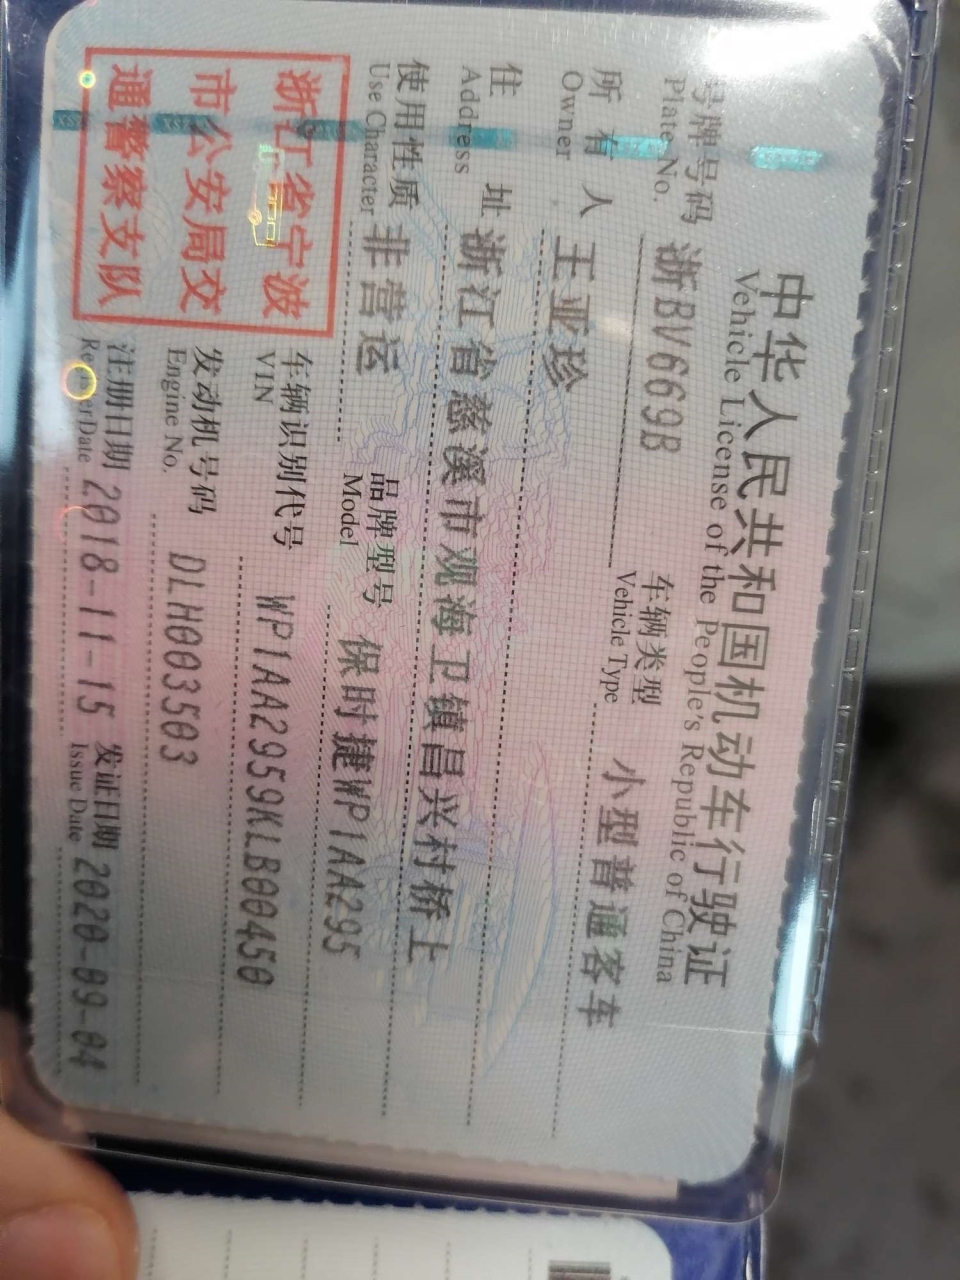 中华人民共和国机动车行驶证
Vehicle License of the People's Republic of China
号牌号码 浙BV669B 车辆类型 小型普通客车
Plate No. Vehicle Type
所有人 王亚珍
Owner
住址 浙江省慈溪市观海卫镇昌兴村桥上
Address
使用性质 非营运 品牌型号 保时捷WP1AA295
Use Character Model
浙江省宁波
市公安局交
通警察支队
车辆识别代号 WP1AA2959KLB00450
VIN
发动机号码 DLH003503
Engine No.
注册日期 2018-11-15 发证日期 2020-09-04
Register Date Issue Date